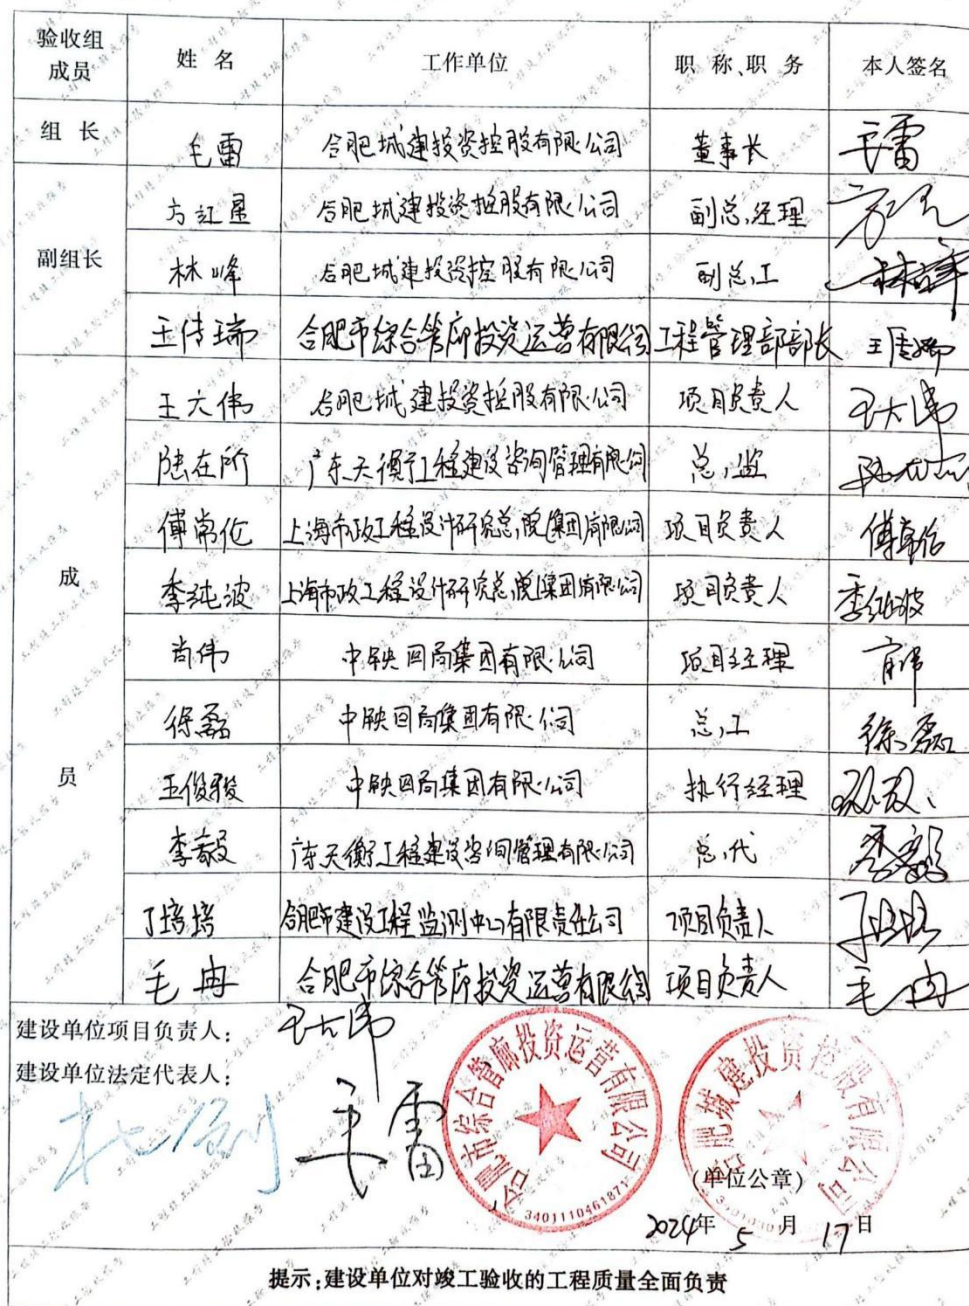 验收组成员 姓 名 工作单位 职 称、职 务 本人签名
组 长 毛雷 合肥城建投资控股有限公司 董事长 毛雷
副组长 方红星 合肥城建投资控股有限公司 副总经理
林峰 合肥城建投资控股有限公司 副总工 林峰
王传瑞 合肥市综合管廊投资运营有限公司 工程管理部部长 王传瑞
成员 王大伟 合肥城建投资控股有限公司 项目负责人 王大伟
陆在阶 广东天衡工程建设咨询管理有限公司 总监 陆在阶
傅常伦 上海市政工程设计研究总院(集团)有限公司 项目负责人
李纯波 上海市政工程设计研究总院(集团)有限公司 项目负责人 李纯波
肖伟 中铁四局集团有限公司 项目经理 肖伟
徐磊 中铁四局集团有限公司 总工 徐磊
王俊骏 中铁四局集团有限公司 执行经理
李毅 广东天衡工程建设咨询管理有限公司 总代 李毅
丁培培 合肥市建设工程监测中心有限责任公司 项目负责人 丁培培
毛冉 合肥市综合管廊投资运营有限公司 项目负责人 毛冉
建设单位项目负责人: 王大伟
建设单位法定代表人:
毛雷
合肥市综合管廊投资运营有限公司
3401110461871
合肥城建投资控股有限公司
(单位公章)
2024年 5 月 17 日
提示:建设单位对竣工验收的工程质量全面负责